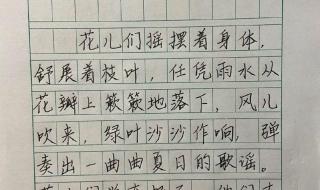 花儿们摇摆着身体,
舒展着枝叶,任凭雨水从
花瓣上簌簌地落下,风儿
吹来,绿叶沙沙作响,弹
奏出一曲曲夏日的歌谣。